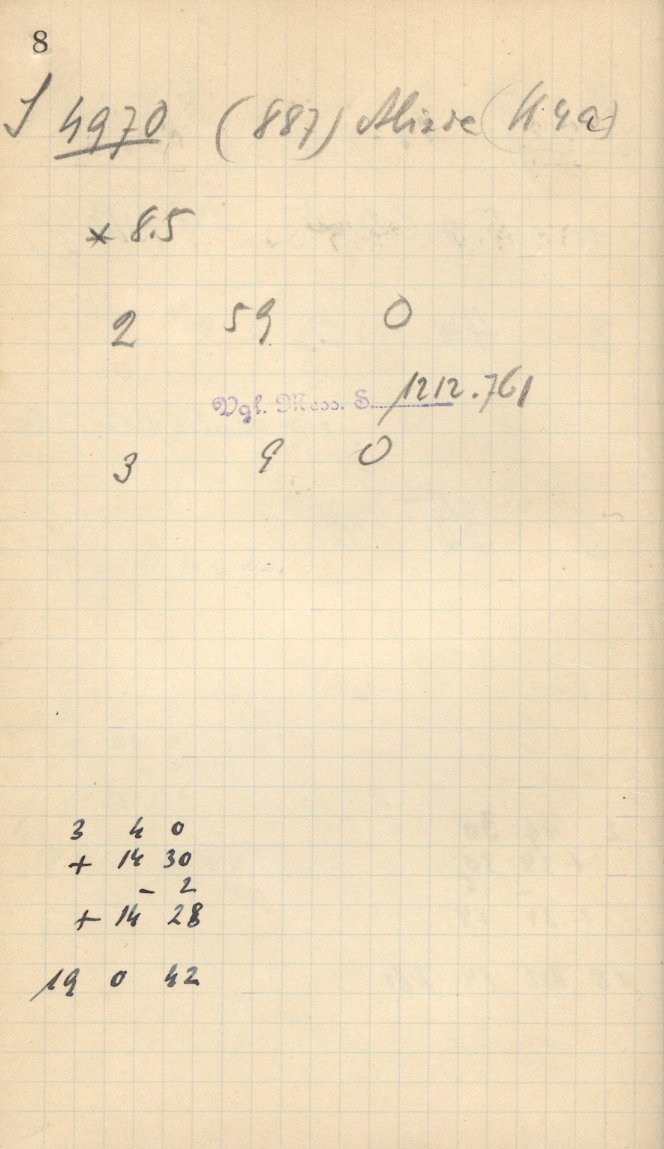 8
J 4970 (887) Alinda (4 4 a)
* 8.5
2 59 0
Vgl. Mess. S. 1212.761
3 9 0
3 4 0
+ 14 30
- 2
+ 14 28
19 0 42